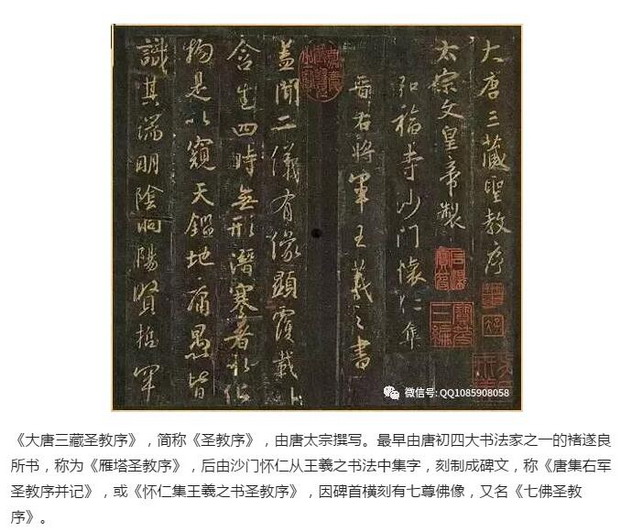 大唐三藏聖教序
太宗文皇帝製
弘福寺沙門懷仁集
晉右將軍王羲之書
蓋聞二儀有像顯覆載以
含生四時無形潛寒暑以化
物是以窺天鑑地庸愚皆
識其端明陰洞陽賢哲罕
微信号: QQ1085908058
《大唐三藏圣教序》，简称《圣教序》，由唐太宗撰写。最早由唐初四大书法家之一的褚遂良
所书，称为《雁塔圣教序》，后由沙门怀仁从王羲之书法中集字，刻制成碑文，称《唐集右军
圣教序并记》，或《怀仁集王羲之书圣教序》，因碑首横刻有七尊佛像，又名《七佛圣教
序》。